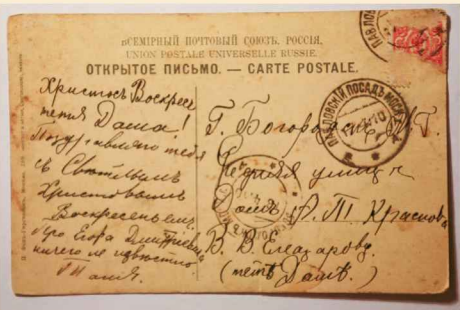 ВСЕМІРНЫЙ ПОЧТОВЫЙ СОЮЗЪ. РОССІЯ.
UNION POSTALE UNIVERSELLE RUSSIE.
ОТКРЫТОЕ ПИСЬМО. — CARTE POSTALE.
Христосъ Воскресе
тетя Даша!
Поздравляю тебя
съ Свѣтлымъ
Христовымъ
Воскресеньемъ.
Про Егора Дмитріевича
ничего не извѣстно
Таня
ПАВЛОВСКІЙ ПОСАДЪ МОСК.
Г. Богородскъ М. Г.
Средняя улица
домъ А. П. Краснова
В. В. Елеазарову
(тетѣ Дашѣ)